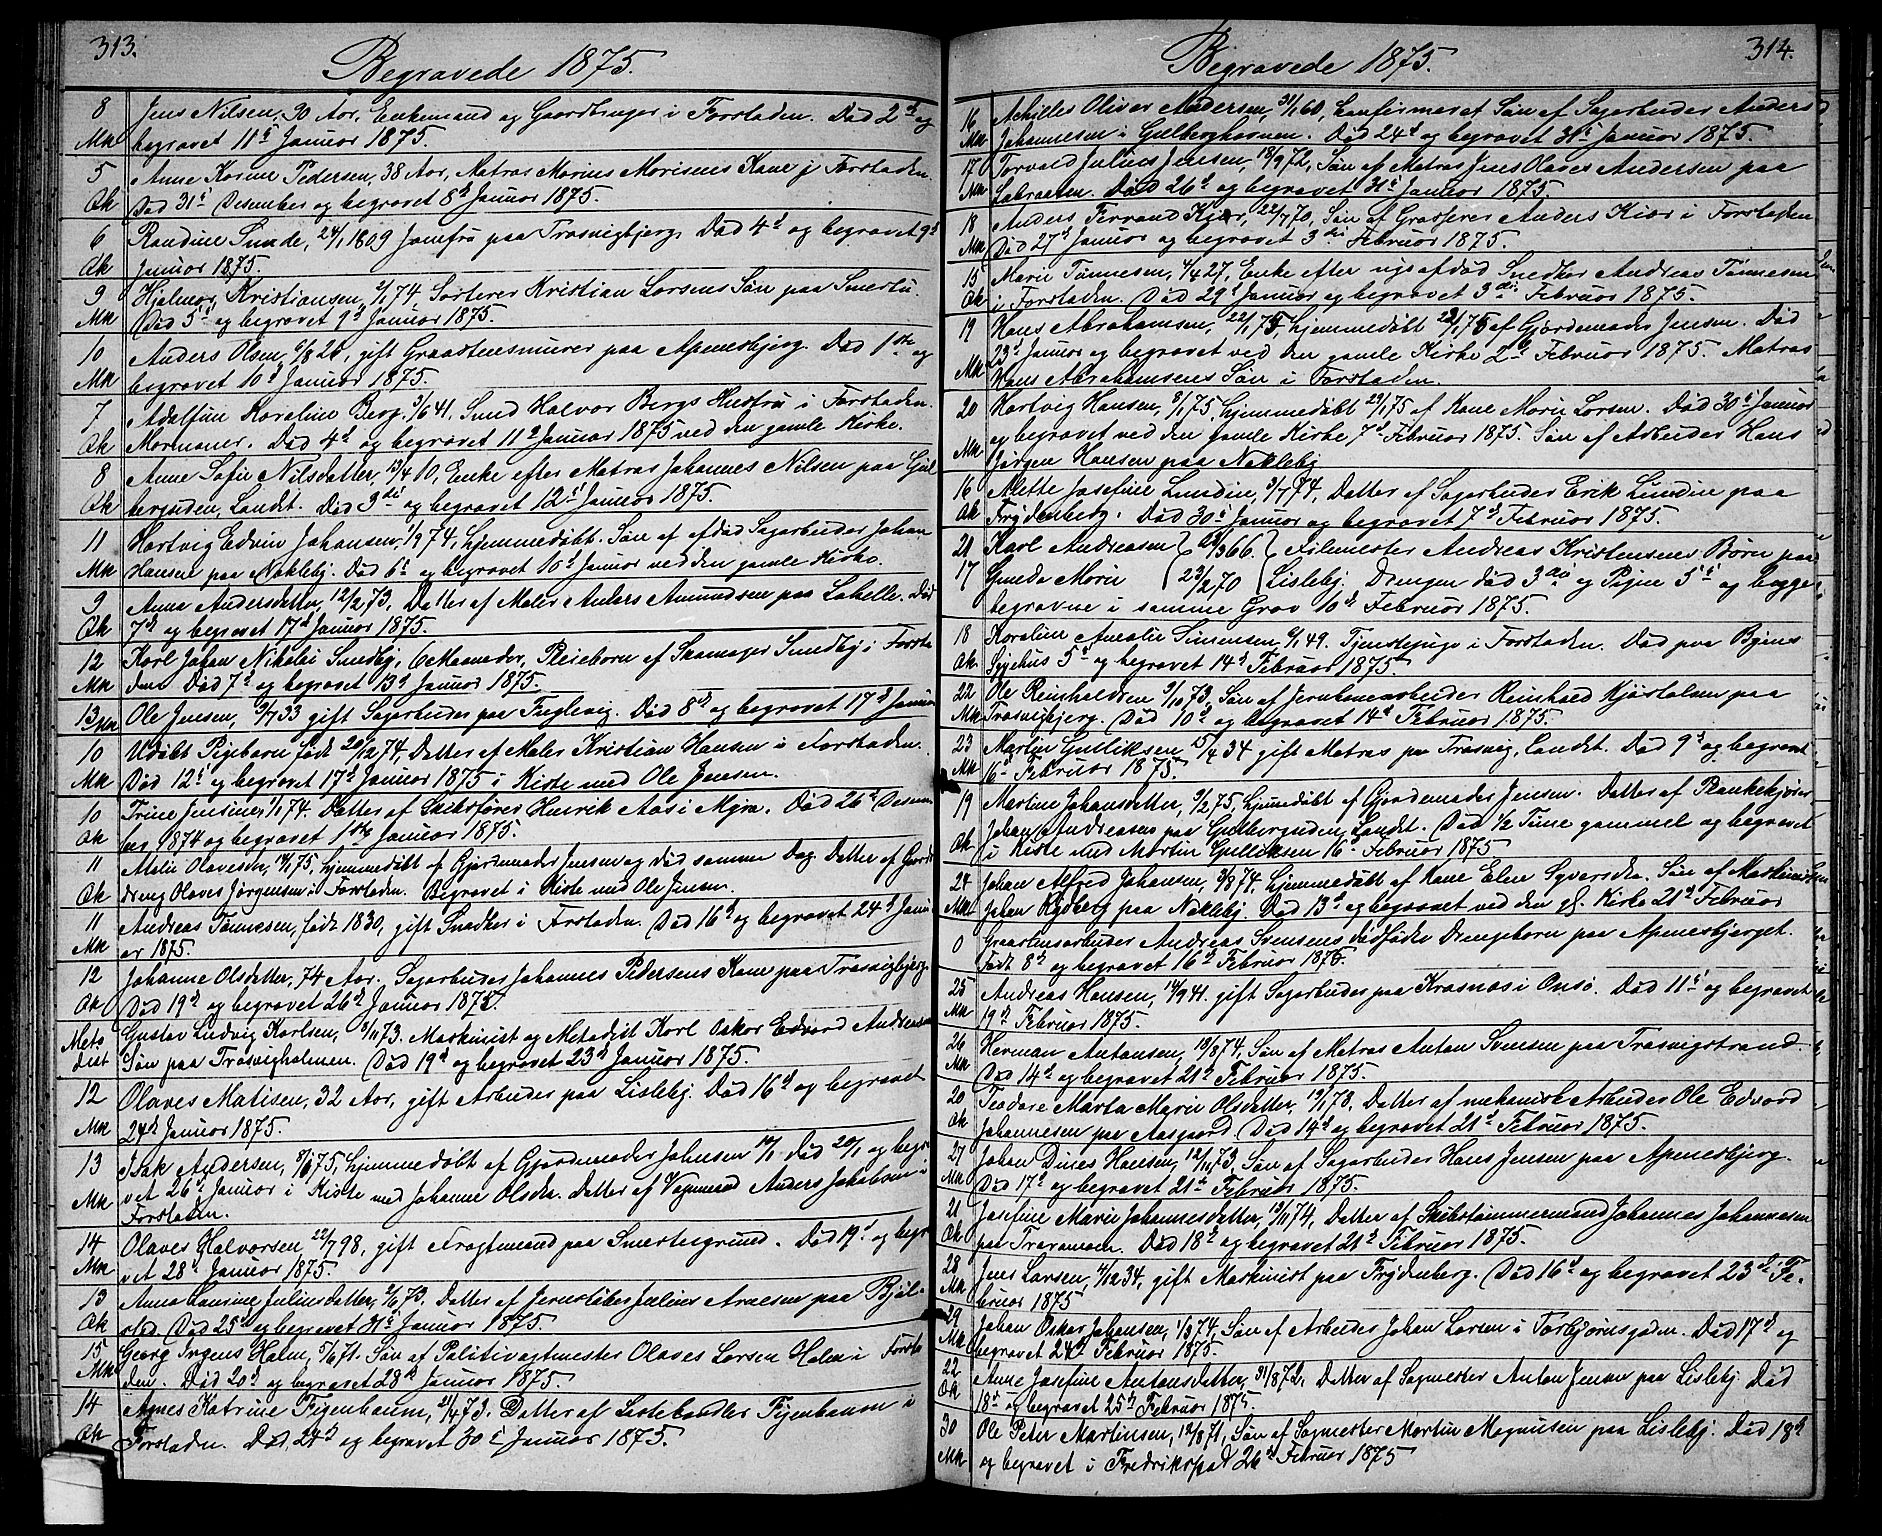 313.
Begravede 1875.
8 Jens Nilsen, 90 Aar, Enkemand og Gaardbruger i Forstaden. Död 2den og
Mk begravet 11te Januar 1875.
5 Anne Karine Pedersen, 38 Aar, Matros Marius Morisens Kone i Forstaden.
Qk Död 31te Desember og begravet 8de Januar 1875.
6 Randine Sunde, 24/1 1809 Jomfru paa Trosvigbjerg. Död 4de og begravet 9de
Qk Januar 1875.
9 Hjalmar Kristiansen, 2/1 74. Sorterer Kristian Larsens Sön paa Smertu.
Mk Död 5te og begravet 9de Januar 1875.
10 Anders Olsen, gift Graastensmurer paa Apenesbjerg. Död 1ste og
Mk begravet 10de Januar 1875.
7 Adolfine Karoline Berg, 9/6 41. Smed Halvor Bergs Hustru i Forstaden.
Qk Mormoner. Död 4de og begravet 11te Januar 1875 ved den gamle Kirke.
8 Anne Sofie Nilsdatter, 13/4 10, Enke efter Matros Johannes Nilsen paa Gul
Qk bergsiden, Landet. Död 3die og begravet 12te Januar 1875.
11 Hartvig Edvin Johansen, 1/9 74, hjemmedöbt. Sön af Afdöd Sagarbeider Johan
Mk Hansen paa Nøkleby. Död 6te og begravet 10de Januar ved den gamle Kirke.
9 Anna Andersdatter, 12/2 73, Datter af Maler Anders Amundsen paa Labelle. Död
Qk 7de og begravet 17de Januar 1875.
12 Karl Johan Nikolai Smedby, 6 Maaneder, Pleiebarn af Skomager Smedby i Forsta
Mk den. Död 7de og begravet 13de Januar 1875.
13 Mk Ole Jensen, 9/7 33 gift Sagarbeider paa Fuglevig. Död 8de og begravet 17de Januar
10 Udöbt Pigebarn födt 20/12 74, Datter af Maler Kristian Hansen i Forstaden.
Mk Död 12te og begravet 17de Januar 1875 i Kiste med Ole Jensen.
10 Trine Jensine, 1/1 74. Datter af Skibsförer Henrik Aas i Myra. Död 26de Desem
Qk ber 1874 og begravet 1ste Januar 1875.
11 hjemmedöbt af Gjordemoder Jensen og död samme Dag. Datter af Gaards
Qk dreng Olaves Jörgensen i Forstaden. Begravet i Kiste med Ole Jensen.
11 Andreas Tönnesen, födt 1830, gift Snedker i Forstaden. Död 16de og begravet 24de Janu
Mk ar 1875.
12 Johanne Olsdatter, 74 Aar. Sagarbeider Johannes Pedersens Kone paa Trosvigbjerg.
Qk Död 19de og begravet 26de Januar 1875.
Meto Gustav Ludvig Karlsen, 5/11 73. Maskinist og Metodist Karl Oskar Edvard Andreasens
dist Sön paa Trosvigholmen. Död 19de og begravet 23de Januar 1875.
12 Olaves Matisen, 32 Aar, gift Arbeider paa Lisleby. Död 16de og begravet
Mk 24de Januar 1875.
13 Isak Andersen, hjemmedöbt af Gjordemoder Johnsen död 20/1 og begra
Mk vet 26de Januar i Kiste med Johanne Olsdtr. Datter af Vognmand Anders Jakobsen i
Forstaden.
14 Olaves Halvorsen, 22/7 98, gift Fragtmand paa Smertesgrund. Död 19de og begra
Mk vet 28de Januar 1875.
13 Anna Lausine Juliusdatter, 2/6 73. Datter af Jernstöber Julius Arnesen paa Bjöl
Qk stad. Död 25de og begravet 31te Januar 1875.
15 Georg Ingens Holm, 5/6 71. Sön af Politivagtmester Olaves Larsen Holm i Forsta
Mk den. Död 20de og begravet 28de Januar 1875.
14 Agnes Katrine Figenbaum, 21/4 73. Datter af Listehandler Figenbaum i
Qk Forstaden. Död 24de og begravet 30te Januar 1875.
314.
Begravede 1875.
16 Achilles Oliver Andersen, 31/1 60, konfirmeret Sön af Sagarbeider Anders
Mk Johannesen i Gulberghavnen. Död 24de og begravet 31te Januar 1875.
17 Torvald Julius Jensen, 18/9 72, Sön af Matros Jens Olaves Andersen paa
Mk Labraaten. Död 26de og begravet 31te Januar 1875.
18 Anders Ferdinand Kiær, 22/7 70, Sön af Grosserer Anders Kiær i Forstaden
Mk Död 27de Januar og begravet 3die Februar 1875.
15 Marie Tönnesen, 4/4 27, Enke efter nys afdöd Snedker Andreas Tönnesen
Qk i Forstaden. Död 29de Januar og begravet 3die Februar 1875.
19 Hans Abrahamsen, 22/1 75, hjemmedöbt 22/1 75 af Gjordemoder Jensen. Död
Mk 23de Januar og begravet ved den gamle Kirke 2den Februar 1875. Matros
Hans Abrahamsens Sön i Forstaden.
20 Hartvig Hansen, 8/1 75, hjemmedöbt 29/1 75 af Kone Marie Larsen. Död 30te Januar
Mk og begravet ved den gamle Kirke 7de Februar 1875. Sön af Arbeider Hans
Jörgen Hansen paa Nøkleby
16 Alette Josefine Lundin, 9/7 74, Datter af Sagarbeider Erik Lundin paa
Qk Frydenberg. Död 30te Januar og begravet 7de Februar 1875.
21 Karl Andreasen 66. Filemester Andreas Kristensens Børn paa
17 Gineda Marie 23/2 70 Lisleby. Drengen död 3die og Pigen 5te og begge
begravne i samme Grav 10de Februar 1875.
18 Karoline Amalie Simensen 6/1 49. Tjenestepige i Forstaden. Död paa Byens
Qk Sygehus 5te og begravet 14de Februar 1875.
22 Ole Reinholdsen 9/10 73, Sön af Jernbanearbeider Reinhold Hjörtolsen paa
Mk Trosvigbjerg. Död 10de og begravet 14de Februar 1875.
23 Martin Gulliksen 15/4 34 gift Matros paa Trosvig, Landet. Död 9de og begravet
Mk 16de Februar 1875.
19 Martine Johansdatter, 9/2 75, hjemmedöbt af Gjordemoder Jensen. Datter af Plankekjörer
Qk Johan Andreasen paa Gulbergsiden Landet. Död 1/2 Time gammel og begravet
i Kiste med Martin Gulliksen 16de Februar 1875
24 Johan Alfred Johansen, 3/8 74, hjemmedöbt af Kone Elen Syversdtr. Sön af Maskinist
Mk Johan Rydberg paa Nøkleby. Död 13de og begravet ved den gl. Kirke 21de Februar
0 Graastensarbeider Andreas Svensens dödfödte Drengebarn paa Apenesbjerget.
Födt 8de og begravet 16de Februar 1875.
25 Andreas Hansen, 14/9 41. gift Sagarbeider paa Krosnes i Onsö. Död 11te og begravet
Mk 19de Februar 1875.
26 Herman Antonsen, 18/8 74, Sön af Matros Anton Svensen paa Trosvigstrand.
Mk Död 14de og begravet 21de Februar 1875.
20 Teodore Marta Marie Olsdatter, Datter af mekanisk Arbeider Ole Edvard
Qk Johannesen paa Aasgaard. Död 14de og begravet 21de Februar 1875.
27 Johan Dines Hansen, 12/11 73, Sön af Sagarbeider Hans Jensen paa Apenesbjerg.
Mk Död 17de og begravet 21de Februar 1875.
21 Josefine Marie Johannesdatter, 13/11 74, Datter af Skibstömmermand Johannes Johannesen
Qk paa Traramoen. Död 18de og begravet 21de Februar 1875.
28 Jens Larsen, 4/12 34, gift Maskinist paa Frydenberg. Död 16de og begravet 23de Fe-
Mk bruar 1875
29 Johan Oskar Johansen, 1/3 74, Sön af Arbeider Johan Larsen i Torbjörnsgaden. Död 17de og
Mk begravet 24de Februar 1875
22 Anne Josefine Antonsdatter, 31/8 72, Datter af Sagmester Anton Jensen paa Lisleby Död
Qk 18de og begravet 25de Februar 1875.
30 Ole Peter Martinsen, 12/8 71, Sön af Sagmester Martin Magnusen paa Lisleby. Död 18de
Mk og begravet i Fredrikstad 26de Februar 1875